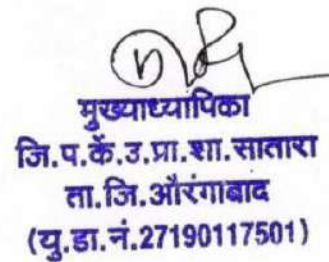 मुख्याध्यापिका
जि.प.कें.उ.प्रा.शा.सातारा
ता.जि.औरंगाबाद
(यु.डा.नं.27190117501)